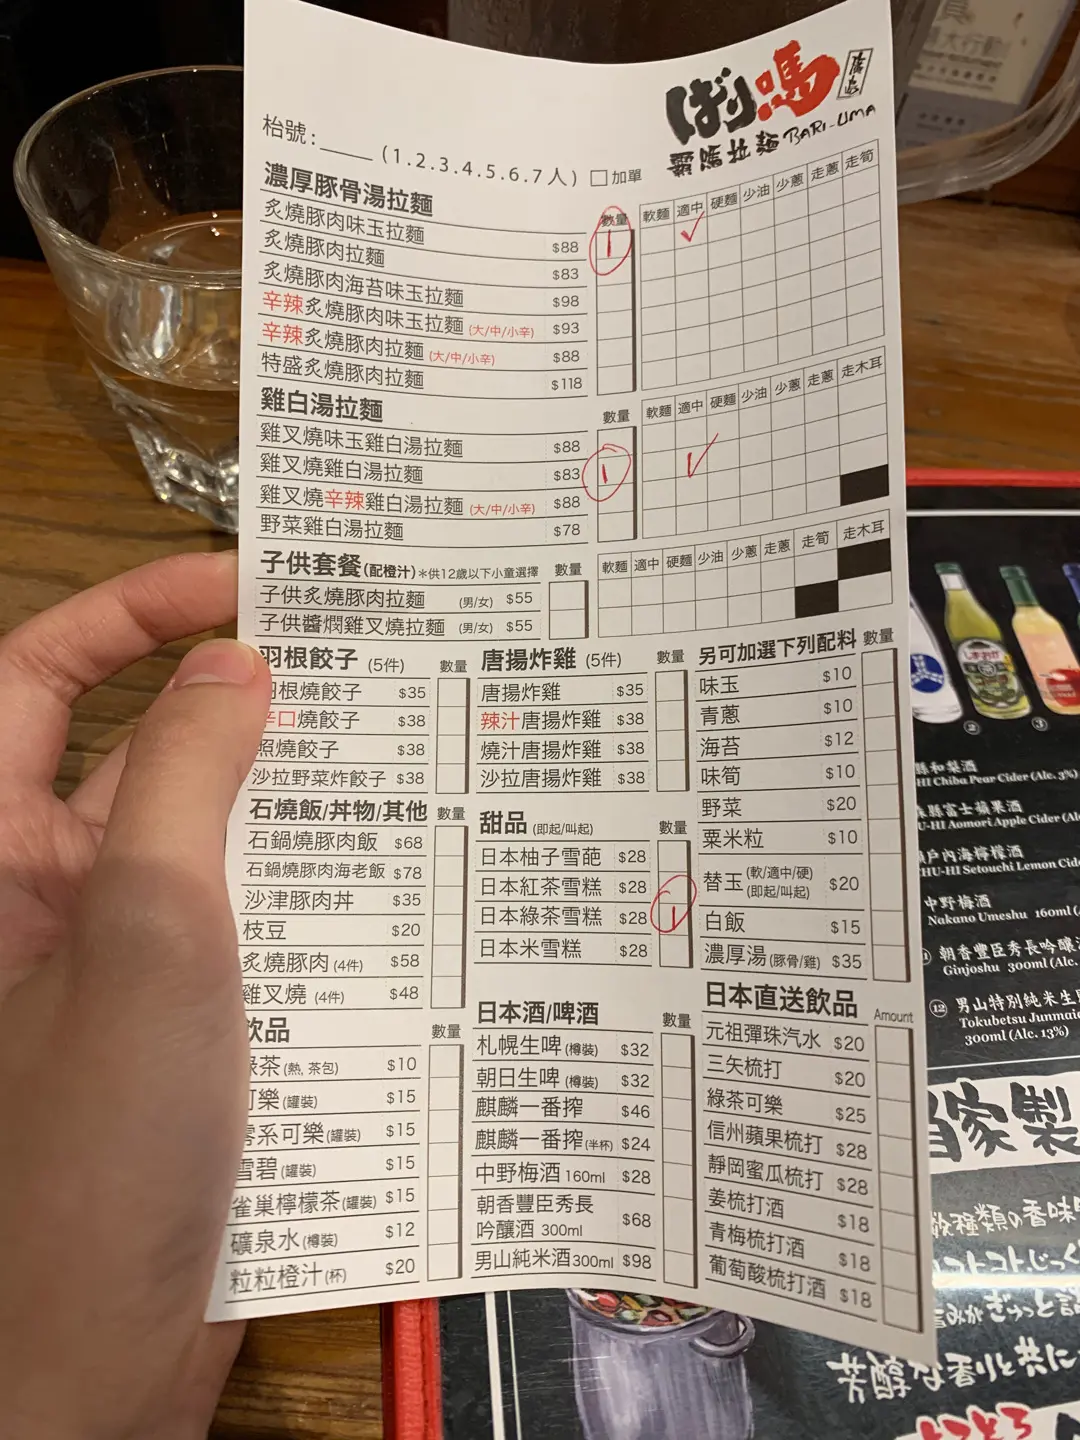 ばり嗎
霸嗎拉麵 BARI-UMA
枱號:____ (1.2.3.4.5.6.7人) □加單
濃厚豚骨湯拉麵 數量 軟麵 適中 硬麵 少油 少蔥 走蔥 走筍
炙燒豚肉味玉拉麵 $88 1 ✓
炙燒豚肉拉麵 $83
炙燒豚肉海苔味玉拉麵 $98
辛辣炙燒豚肉味玉拉麵 (大/中/小辛) $93
辛辣炙燒豚肉拉麵 (大/中/小辛) $88
特盛炙燒豚肉拉麵 $118
雞白湯拉麵 數量 軟麵 適中 硬麵 少油 少蔥 走蔥 走木耳
雞叉燒味玉雞白湯拉麵 $88
雞叉燒雞白湯拉麵 $83 1 ✓
雞叉燒辛辣雞白湯拉麵 (大/中/小辛) $88
野菜雞白湯拉麵 $78
子供套餐(配橙汁) *供12歲以下小童選擇 數量 軟麵 適中 硬麵 少油 少蔥 走蔥 走筍 走木耳
子供炙燒豚肉拉麵 (男/女) $55
子供醬燜雞叉燒拉麵 (男/女) $55
羽根餃子 (5件) 數量
羽根燒餃子 $35
辛口燒餃子 $38
照燒餃子 $38
沙拉野菜炸餃子 $38
唐揚炸雞 (5件) 數量
唐揚炸雞 $35
辣汁唐揚炸雞 $38
燒汁唐揚炸雞 $38
沙拉唐揚炸雞 $38
另可加選下列配料 數量
味玉 $10
青蔥 $10
海苔 $12
味筍 $10
野菜 $20
粟米粒 $10
替玉 (軟/適中/硬) (即起/叫起) $20
白飯 $15
濃厚湯 (豚骨/雞) $35
石燒飯/丼物/其他 數量
石鍋燒豚肉飯 $68
石鍋燒豚肉海老飯 $78
沙津豚肉丼 $35
枝豆 $20
炙燒豚肉 (4件) $58
雞叉燒 (4件) $48
甜品 (即起/叫起) 數量
日本柚子雪葩 $28
日本紅茶雪糕 $28
日本綠茶雪糕 $28 1
日本米雪糕 $28
飲品 數量
綠茶 (熱, 茶包) $10
可樂 (罐裝) $15
零系可樂 (罐裝) $15
雪碧 (罐裝) $15
雀巢檸檬茶 (罐裝) $15
礦泉水 (樽裝) $12
粒粒橙汁 (杯) $20
日本酒/啤酒 數量
札幌生啤 (樽裝) $32
朝日生啤 (樽裝) $32
麒麟一番搾 $46
麒麟一番搾 (半杯) $24
中野梅酒 160ml $28
朝香豐臣秀長
吟釀酒 300ml $68
男山純米酒 300ml $98
日本直送飲品 Amount
元祖彈珠汽水 $20
三矢梳打 $20
綠茶可樂 $25
信州蘋果梳打 $28
靜岡蜜瓜梳打 $28
姜梳打酒 $18
青梅梳打酒 $18
葡萄酸梳打酒 $18
② ③
縣和梨酒
HI Chiba Pear Cider (Alc. 3%)
縣富士蘋果酒
U-HI Aomori Apple Cider (Al
瀨戶內海檸檬酒
HU-HI Setouchi Lemon Cid
中野梅酒
Nakano Umeshu 160ml (A
朝香豐臣秀長吟釀
Ginjoshu 300ml (Alc.
⑫ 男山特別純米生
Tokubetsu Junmai
300ml (Alc. 13%)
自家製
数種類の香味
コトコトじっく
旨みがぎゅっと
芳醇な香りと共に